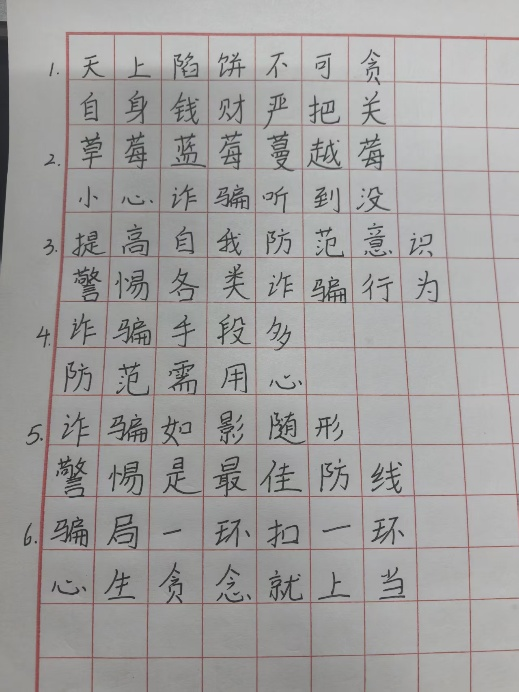 1. 天上陷饼不可贪
自身钱财严把关
2. 草莓蓝莓蔓越莓
小心诈骗听到没
3. 提高自我防范意识
警惕各类诈骗行为
4. 诈骗手段多
防范需用心
5. 诈骗如影随形
警惕是最佳防线
6. 骗局一环扣一环
心生贪念就上当